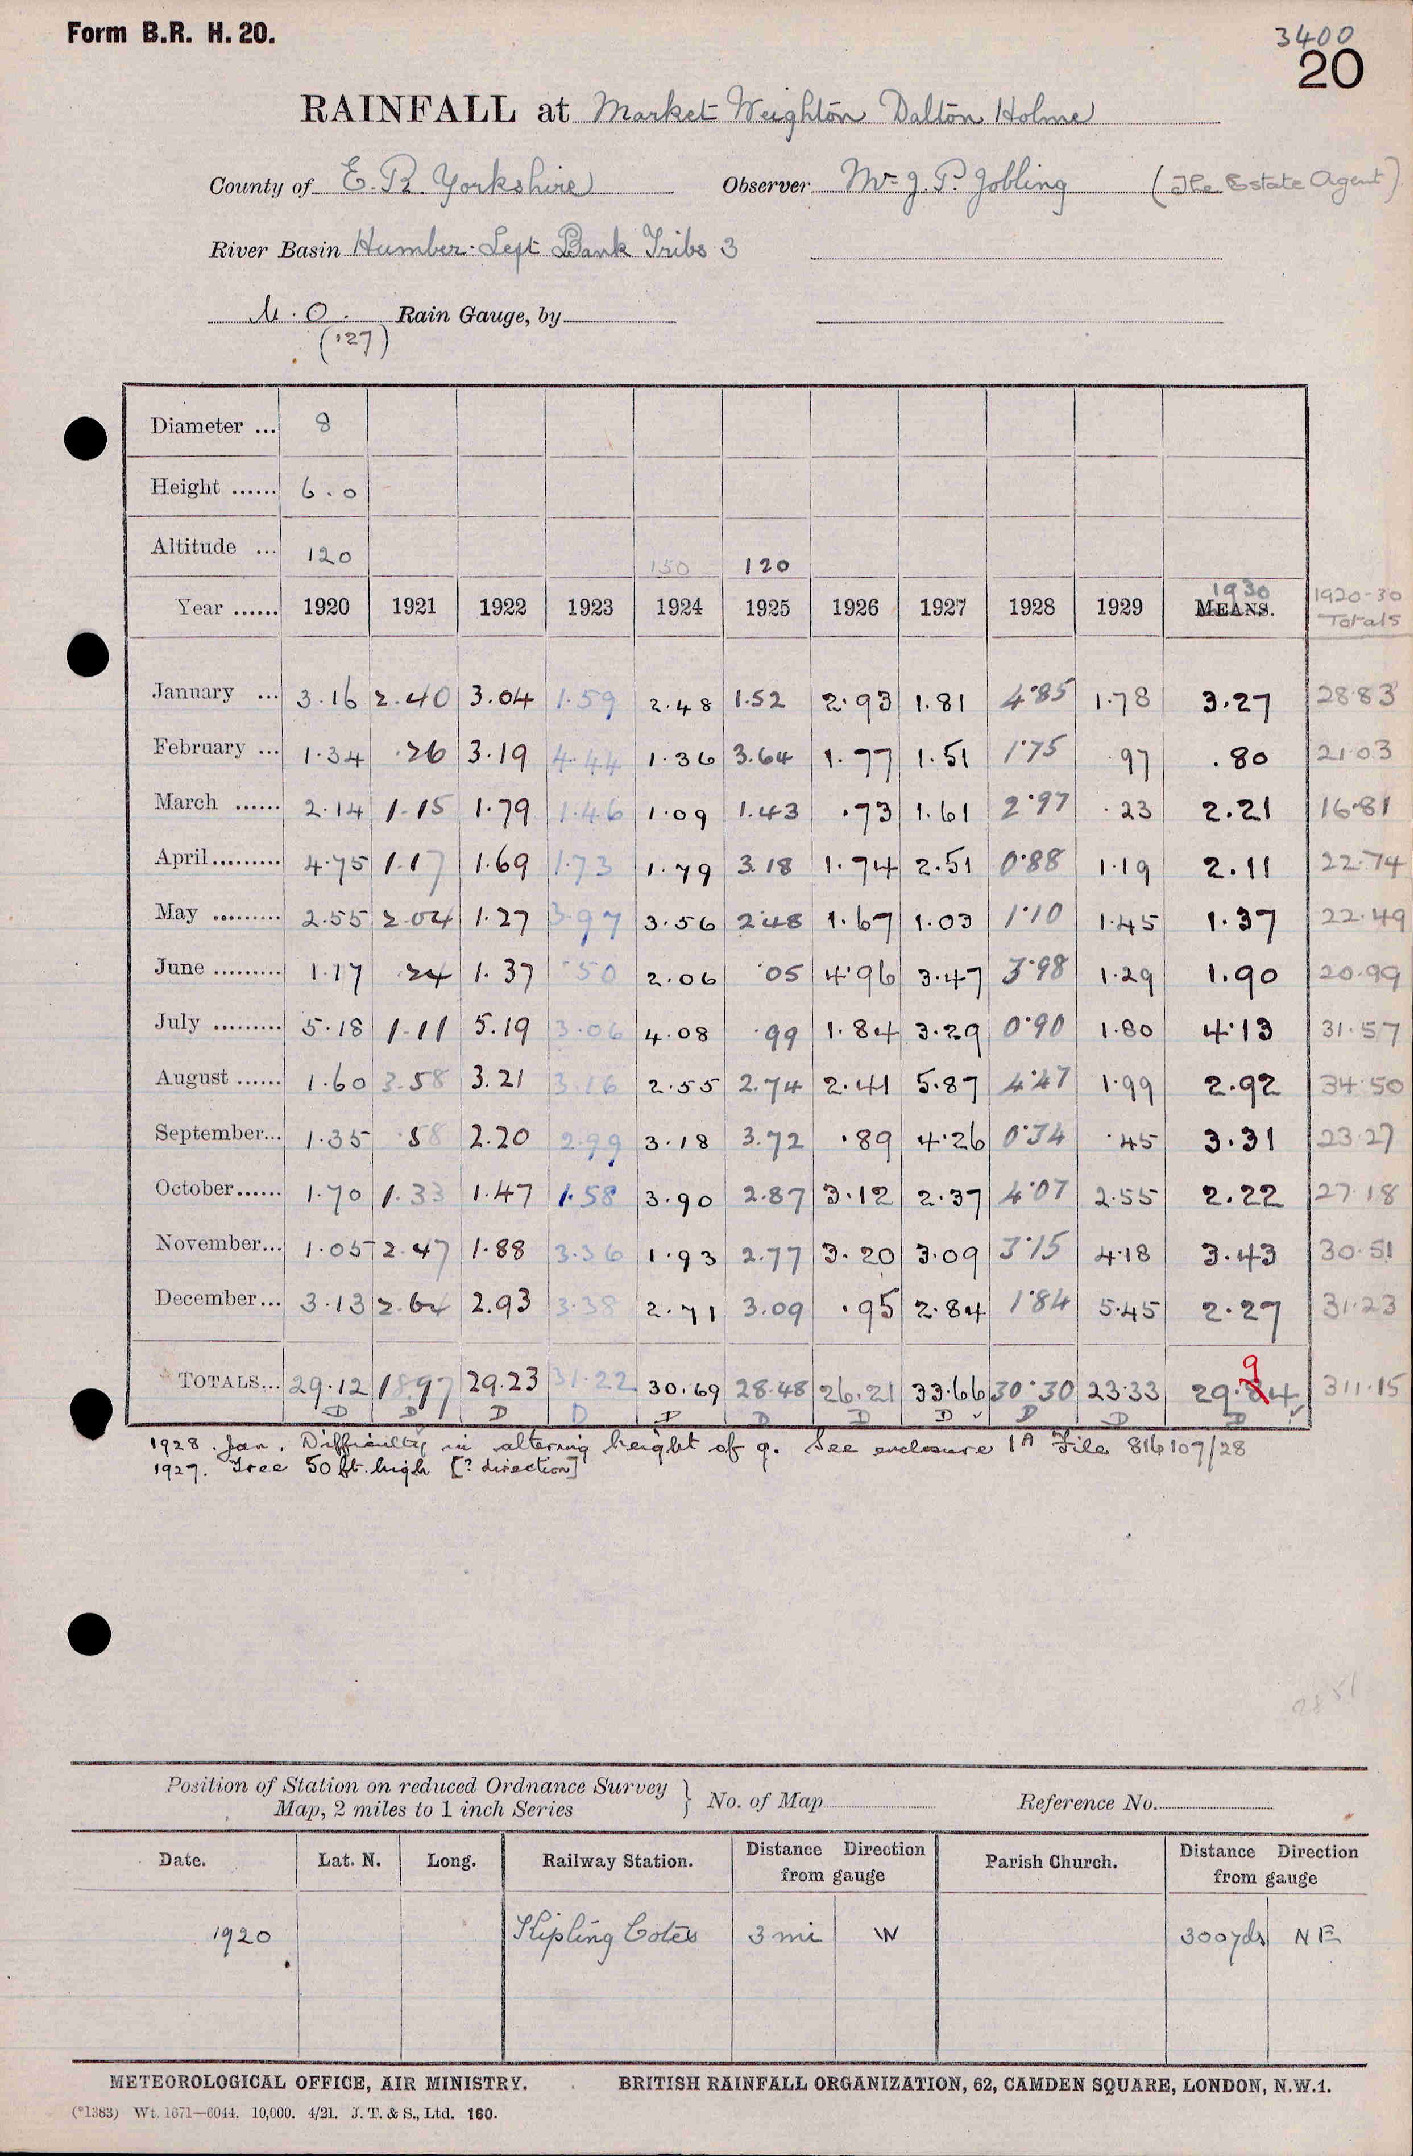 Form B.R. H. 20.
3400
20
RAINFALL at Market Weighton Dalton Holme
County of E. R. Yorkshire Observer Mr J. P. Jobling (The Estate Agent)
River Basin Humber. Left Bank Tribs 3
M.O. Rain Gauge, by
('27)
Diameter ... 8
Height ...... 6.0
Altitude ... 120 150 120
1930 1920-30
Year ...... 1920 1921 1922 1923 1924 1925 1926 1927 1928 1929 MEANS. Totals
January ... 3.16 2.40 3.04 1.59 2.48 1.52 2.93 1.81 4.85 1.78 3.27 28.83
February ... 1.34 .26 3.19 4.44 1.36 3.64 1.77 1.51 1.75 .97 .80 21.03
March ...... 2.14 1.15 1.79 1.46 1.09 1.43 .73 1.61 2.97 .23 2.21 16.81
April......... 4.75 1.17 1.69 1.73 1.79 3.18 1.74 2.51 0.88 1.19 2.11 22.74
May ......... 2.55 2.04 1.27 3.97 3.56 2.48 1.67 1.03 1.10 1.45 1.37 22.49
June ......... 1.17 .24 1.37 .50 2.06 .05 4.96 3.47 3.98 1.29 1.90 20.99
July ......... 5.18 1.11 5.19 3.06 4.08 .99 1.84 3.29 0.90 1.80 4.13 31.57
August ...... 1.60 3.58 3.21 3.16 2.55 2.74 2.41 5.87 4.47 1.99 2.92 34.50
September... 1.35 .58 2.20 2.99 3.18 3.72 .89 4.26 0.34 .45 3.31 23.27
October...... 1.70 1.33 1.47 1.58 3.90 2.87 3.12 2.37 4.07 2.55 2.22 27.18
November... 1.05 2.47 1.88 3.36 1.93 2.77 3.20 3.09 3.15 4.18 3.43 30.51
December... 3.13 2.64 2.93 3.38 2.71 3.09 .95 2.84 1.84 5.45 2.27 31.23
9
TOTALS... 29.12 18.97 29.23 31.22 30.69 28.48 26.21 33.66 30.30 23.33 29.84 311.15
D D D D D D D D D D D
1928 Jan. Difficulty in altering height of g. See enclosure 1A File 816107/28
1927. Tree 50 ft. high [? direction]
Position of Station on reduced Ordnance Survey
Map, 2 miles to 1 inch Series } No. of Map Reference No.
Date. Lat. N. Long. Railway Station. Distance Direction from gauge Parish Church. Distance Direction from gauge
1920 Kipling Cotes 3 mi W 300yds NE
METEOROLOGICAL OFFICE, AIR MINISTRY. BRITISH RAINFALL ORGANIZATION, 62, CAMDEN SQUARE, LONDON, N.W.1.
(*1383) Wt. 1671—6044. 10,000. 4/21. J. T. & S., Ltd. 160.